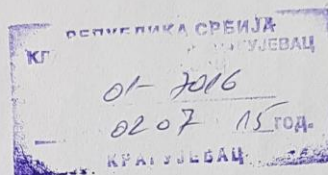 РЕПУБЛИКА СРБИЈА
КГ
01- 7016
02 07 15 год.
КРАГУЈЕВАЦ